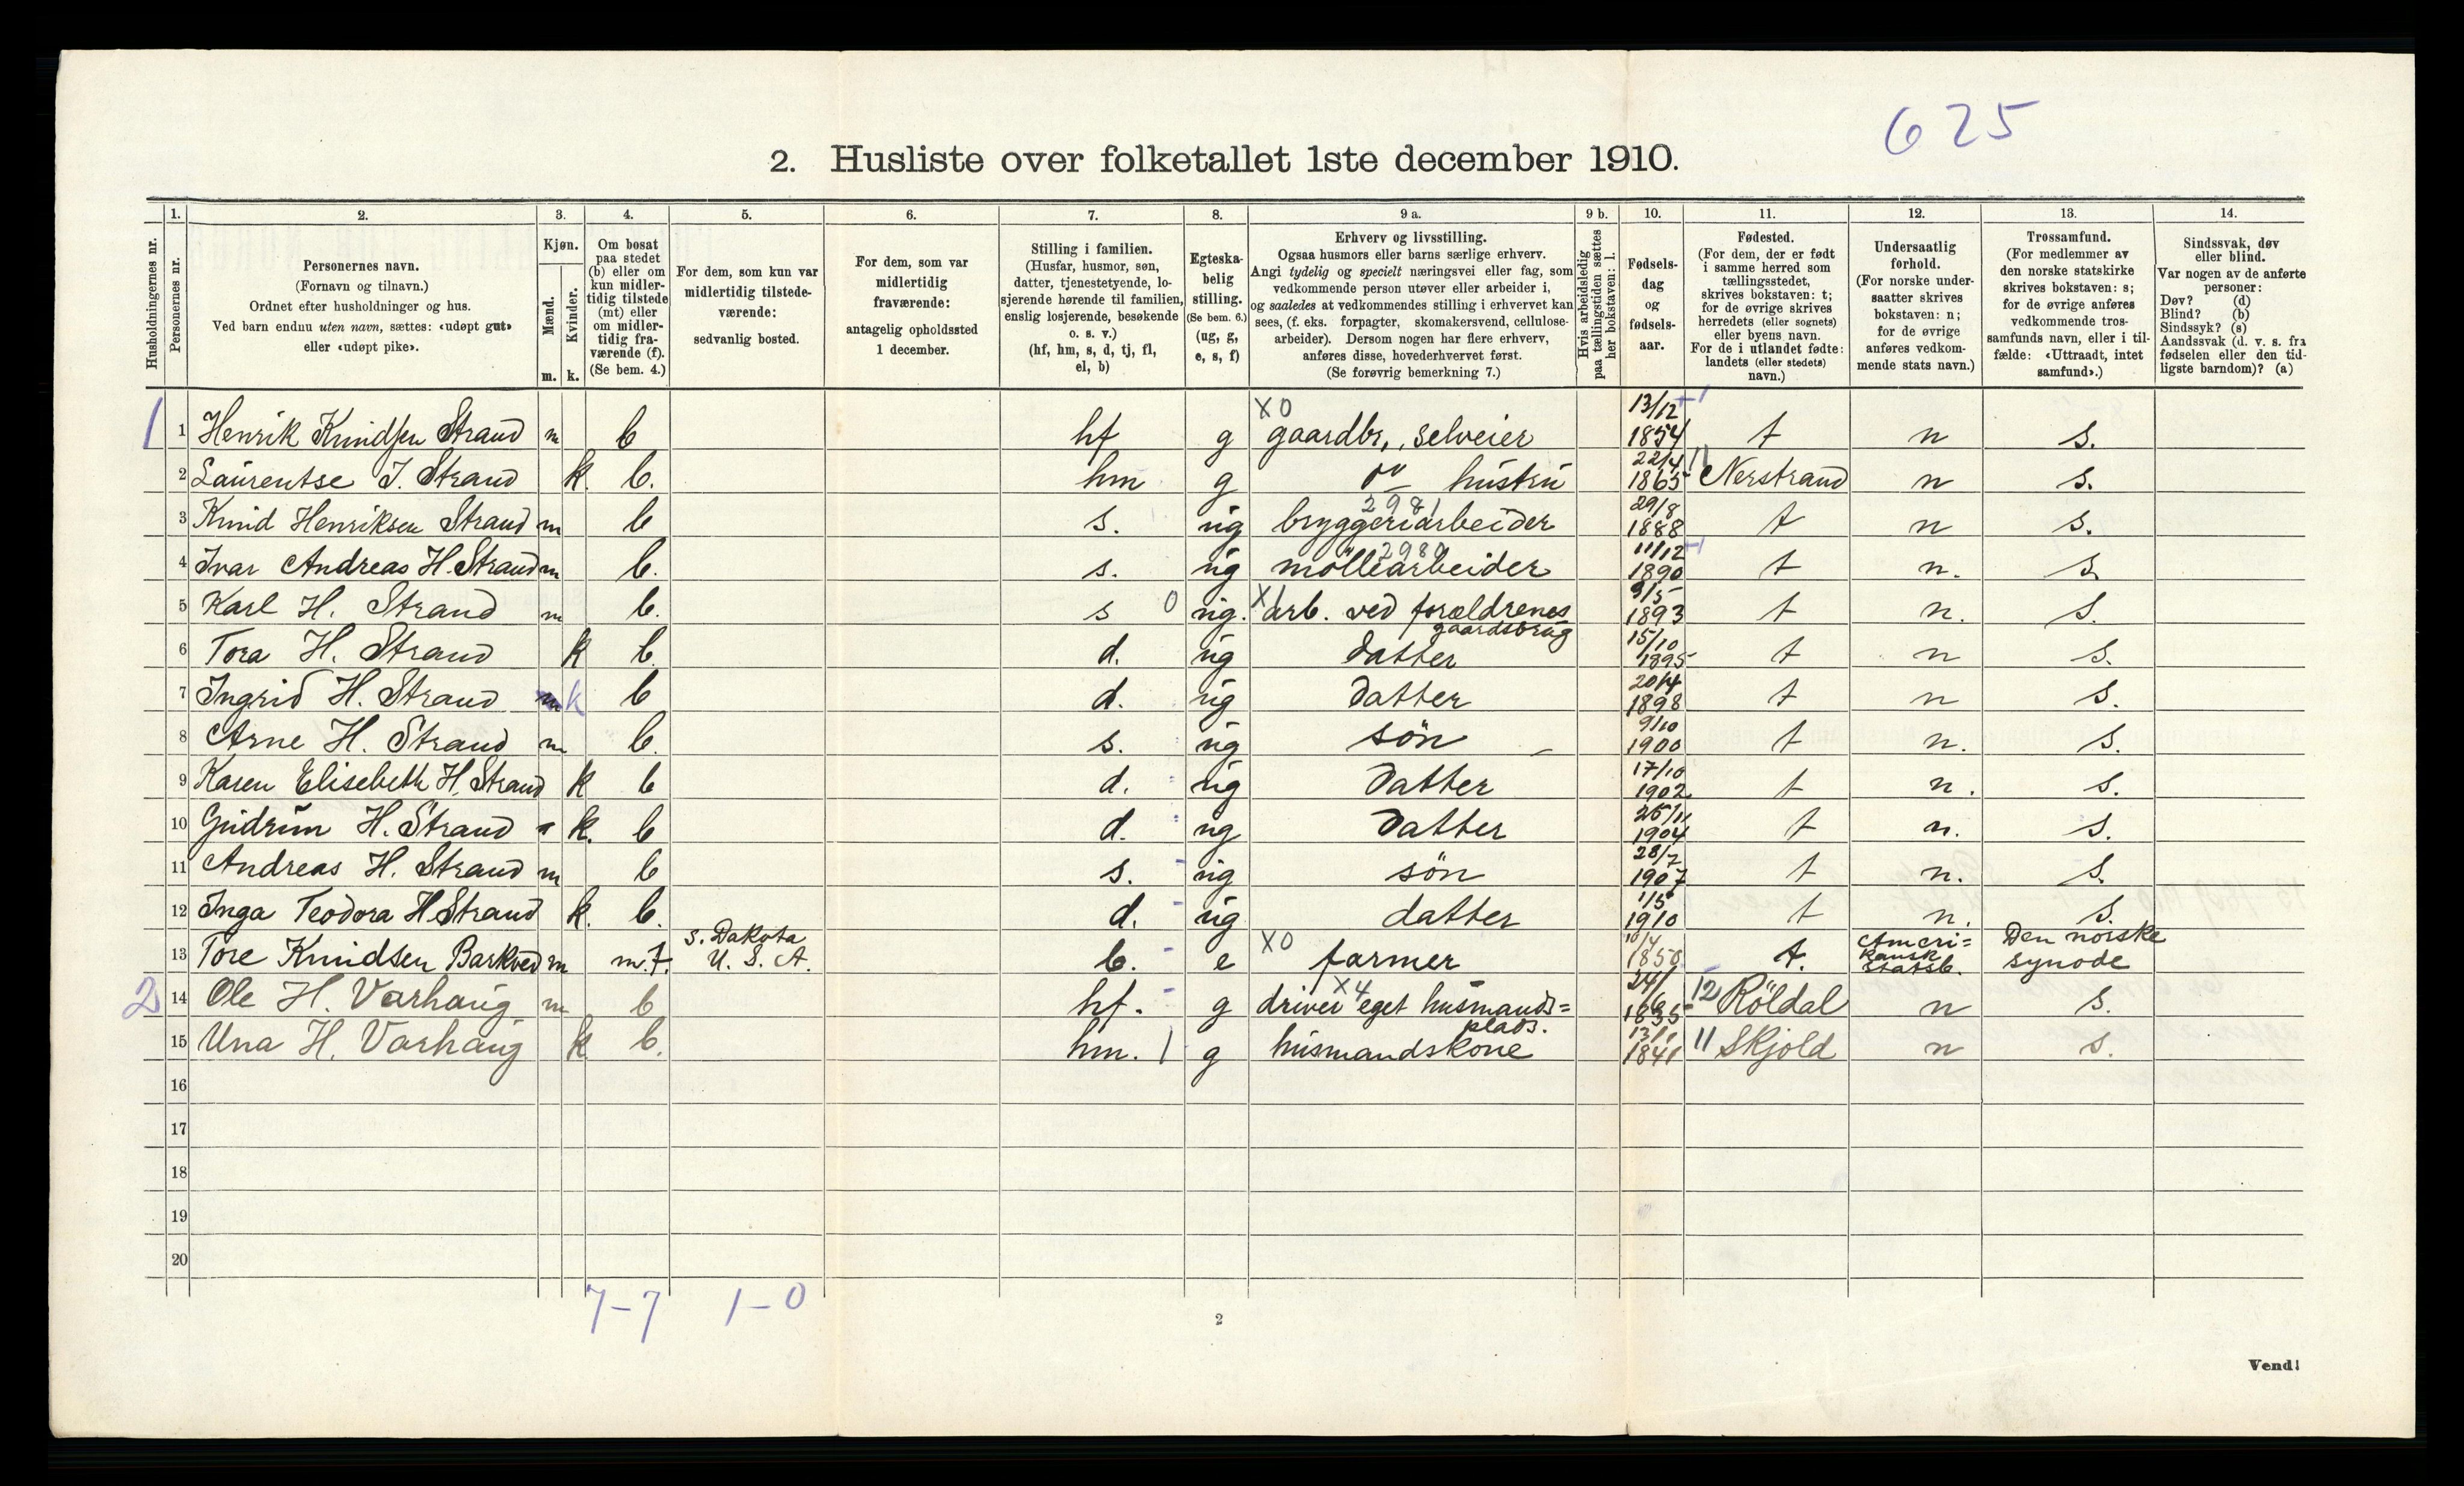 625
2. Husliste over folketallet 1ste december 1910.
1. 2. 3. 4. 5. 6. 7. 8. 9 a. 9 b. 10. 11. 12. 13. 14.
Husholdningernes nr.
Personernes nr.
Personernes navn.
(Fornavn og tilnavn.)
Ordnet efter husholdninger og hus.
Ved barn endnu uten navn, sættes: «udøpt gut»
eller «udøpt pike».
Kjøn.
Mænd.
Kvinder.
m. k.
Om bosat
paa stedet
(b) eller om
kun midler-
tidig tilstede
(mt) eller
om midler-
tidig fra-
værende (f).
(Se bem. 4.)
For dem, som kun var
midlertidig tilstede-
værende:
sedvanlig bosted.
For dem, som var
midlertidig
fraværende:
antagelig opholdssted
1 december.
Stilling i familien.
(Husfar, husmor, søn,
datter, tjenestetyende, lo-
sjerende hørende til familien,
enslig losjerende, besøkende
o. s. v.)
(hf, hm, s, d, tj, fl,
el, b)
Egteska-
belig
stilling.
(Se bem. 6.)
(ug, g,
e, s, f)
Erhverv og livsstilling.
Ogsaa husmors eller barns særlige erhverv.
Angi tydelig og specielt næringsvei eller fag, som
vedkommende person utøver eller arbeider i,
og saaledes at vedkommendes stilling i erhvervet kan
sees, (f. eks. forpagter, skomakersvend, cellulose-
arbeider). Dersom nogen har flere erhverv,
anføres disse, hovederhvervet først.
(Se forøvrig bemerkning 7.)
Hvis arbeidsledig
paa tællingstiden sættes
her bokstaven: l.
Fødsels-
dag
og
fødsels-
aar.
Fødested.
(For dem, der er født
i samme herred som
tællingsstedet,
skrives bokstaven: t;
for de øvrige skrives
herredets (eller sognets)
eller byens navn.
For de i utlandet fødte:
landets (eller stedets)
navn.)
Undersaatlig
forhold.
(For norske under-
saatter skrives
bokstaven: n;
for de øvrige
anføres vedkom-
mende stats navn.)
Trossamfund.
(For medlemmer av
den norske statskirke
skrives bokstaven: s;
for de øvrige anføres
vedkommende tros-
samfunds navn, eller i til-
fælde: «Uttraadt, intet
samfund».)
Sindssvak, døv
eller blind.
Var nogen av de anførte
personer:
Døv? (d)
Blind? (b)
Sindssyk? (s)
Aandssvak (d. v. s. fra
fødselen eller den tid-
ligste barndom)? (a)
1 1 Henrik Knudsen Strand m b hf g X0 gaardbr., selveier 13/12 1854 t n s.
2 Laurentse J. Strand k. b. hm g hustru 22/4 1865 11 Nerstrand n s.
3 Knud Henriksen Strand m b s. ug 2981 bryggeriarbeider 29/8 1888 t n s.
4 Ivar Andreas H. Strand m b. s. ug 2980 möllearbeider 11/12 1890 t n. s.
5 Karl H. Strand m b. s 0 ug. X1 arb. ved forældrenes gaardsbrug 9/5 1893 t n. s.
6 Tora H. Strand k b. d. ug datter 15/10 1895 t n s.
7 Ingrid H. Strand m k b d. ug datter 20/4 1898 t n s.
8 Arne H. Strand m b. s. ug sön 9/10 1900 t n. s.
9 Karen Elisebeth H. Strand k b d. ug datter 17/10 1902 t n. s.
10 Gudrun H. Strand k. b d. ug datter 26/11 1904 t n. s.
11 Andreas H. Strand m b s. ug sön 28/7 1907 t n. s.
12 Inga Teodora H. Strand k. b. d. ug datter 1/5 1910 t n. s.
13 Tore Knudsen Barkved m m.t. S. Dakota U. S. A. b. e X0 farmer 1850 t. Ameri= kansk statsb. Den norske synode
2 14 Ole H. Varhaug m b hf. g X4 driver eget husmands= plads. 24/6 1835 12 Röldal n s.
15 Una H. Varhaug k b. hm. 1 g husmandskone 13/1 1841 11 Skjold n s.
16
17
18
19
20
7-7 1-0
2
Vend!